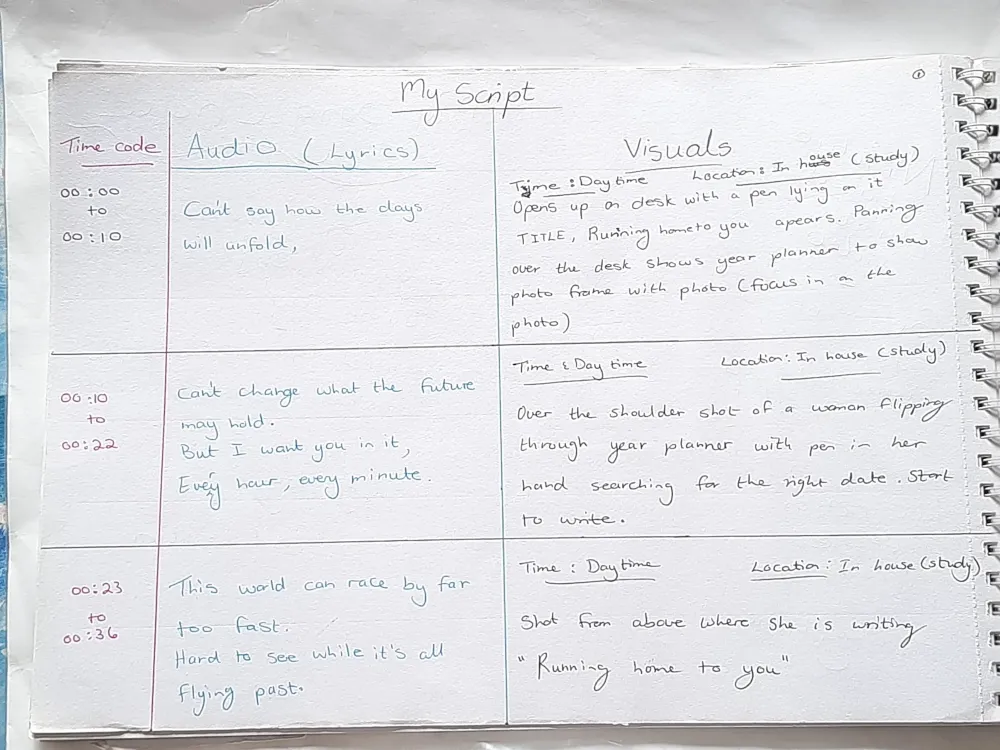 ①
My Script
Time code
Audio (Lyrics)
Visuals
00:00
to
00:10
Can't say how the days
will unfold,
Tyme : Day time Location: In house (study)
Opens up on desk with a pen lying on it
TITLE, Running home to you apears. Panning
over the desk shows year planner to show
photo frame with photo (focus in on the
photo)
00:10
to
00:22
Can't change what the future
may hold.
But I want you in it,
Every hour, every minute.
Time : Day time Location: In house (study)
Over the shoulder shot of a woman flipping
through year planner with pen in her
hand searching for the right date. Start
to write.
00:23
to
00:36
This world can race by far
too fast.
Hard to see while it's all
flying past.
Time : Day time Location: In house (study)
Shot from above where she is writing
"Running home to you"